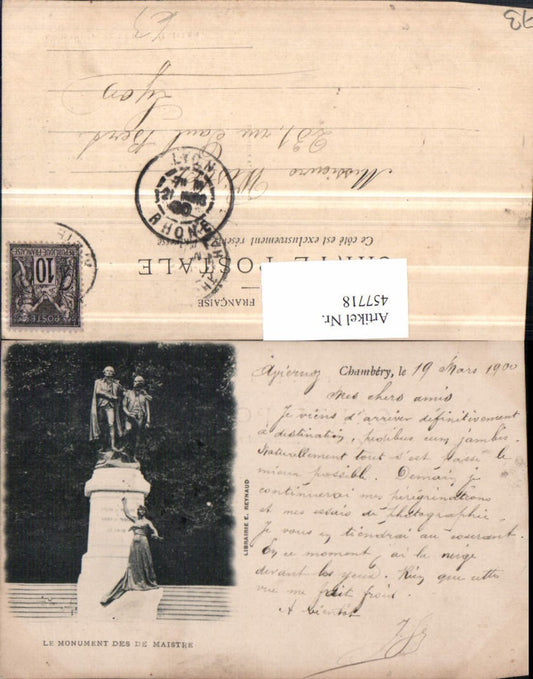 93
Lyon
231, rue Paul Bert
Messieurs
LYON
21 MARS
00
RHONE
Ce côté est exclusivement réservé
CARTE POSTALE
FRANÇAISE
10
POSTES
REPUBLIQUE FRANÇAISE
Artikel Nr.
457718
Chambéry, le 19 Mars 1900
Mes chers amis
Je viens d'arriver définitivement
à destination, pedibus cum jambis.
Naturellement tout s'est passé le
mieux possible. Demain, je
continuerai mes pérégrinations
et mes essais de photographie.
Je vous en tiendrai au courant.
En ce moment, ai la neige
devant les yeux. Rien que cette
vue me fait froid.
A bientôt
LIBRAIRIE E. REYNAUD
LE MONUMENT DES DE MAISTRE